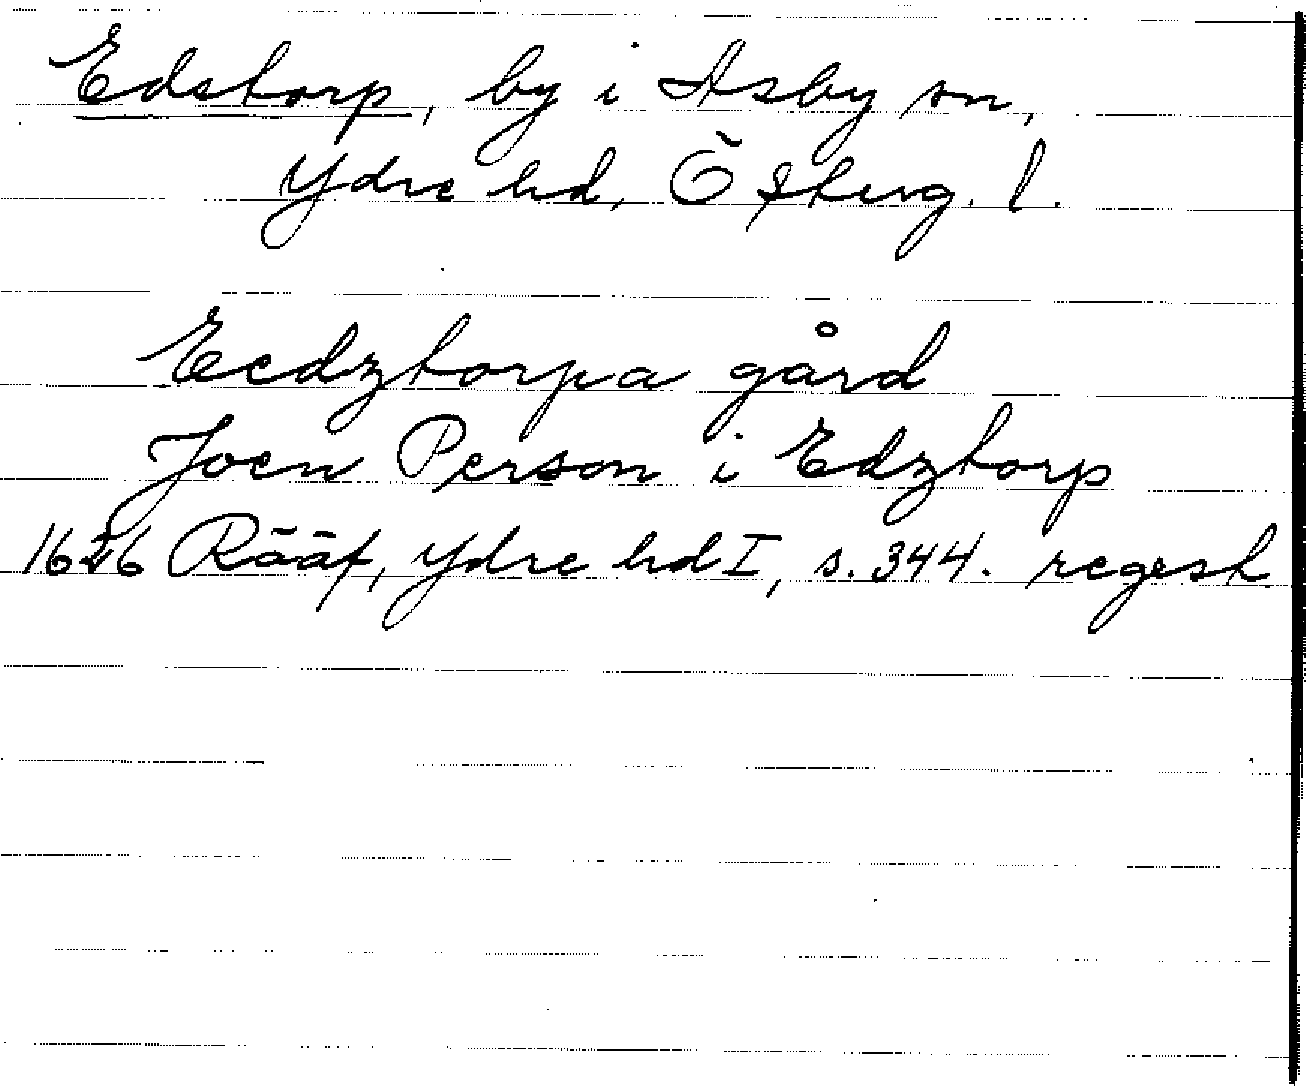 Edstorp, by i Asby sn,
Ydre hd, Östերg. l.
Eedztorpa gård
Joen Person i Edztorp
1626 Rääf, Ydre hd I, s. 344. regest